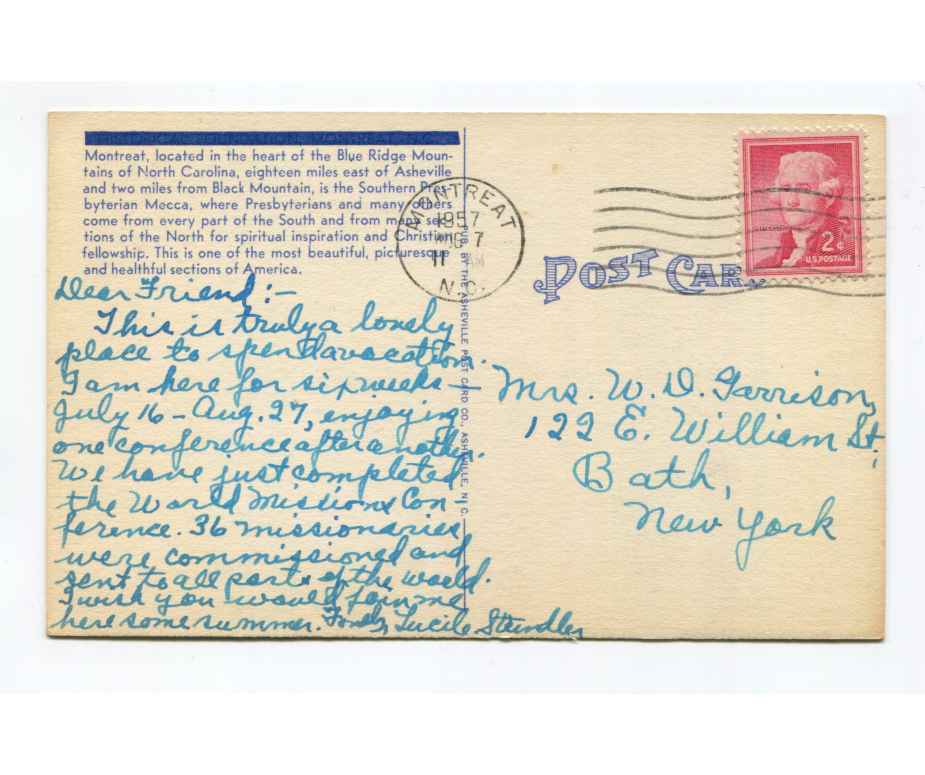 Montreat, located in the heart of the Blue Ridge Moun-
tains of North Carolina, eighteen miles east of Asheville
and two miles from Black Mountain, is the Southern Pres-
byterian Mecca, where Presbyterians and many others
come from every part of the South and from many sec-
tions of the North for spiritual inspiration and Christian
fellowship. This is one of the most beautiful, picturesque
and healthful sections of America.
Dear Friend:-
This is truly a lovely
place to spend a vacation.
I am here for six weeks -
July 16 - Aug. 27, enjoying
one conference after another.
We have just completed
the World Missions Con-
ference. 36 missionaries
were commissioned and
sent to all parts of the world.
I wish you would join me
here some summer. Fondly, Lucile
PUB. BY THE ASHEVILLE POST CARD CO., ASHEVILLE, N. C.
MONTREAT
1957
AUG 7
11 AM
N.C.
POST CARD
2¢
U.S. POSTAGE
Mrs. W. D. Garrison,
122 E. William St,
Bath,
New York